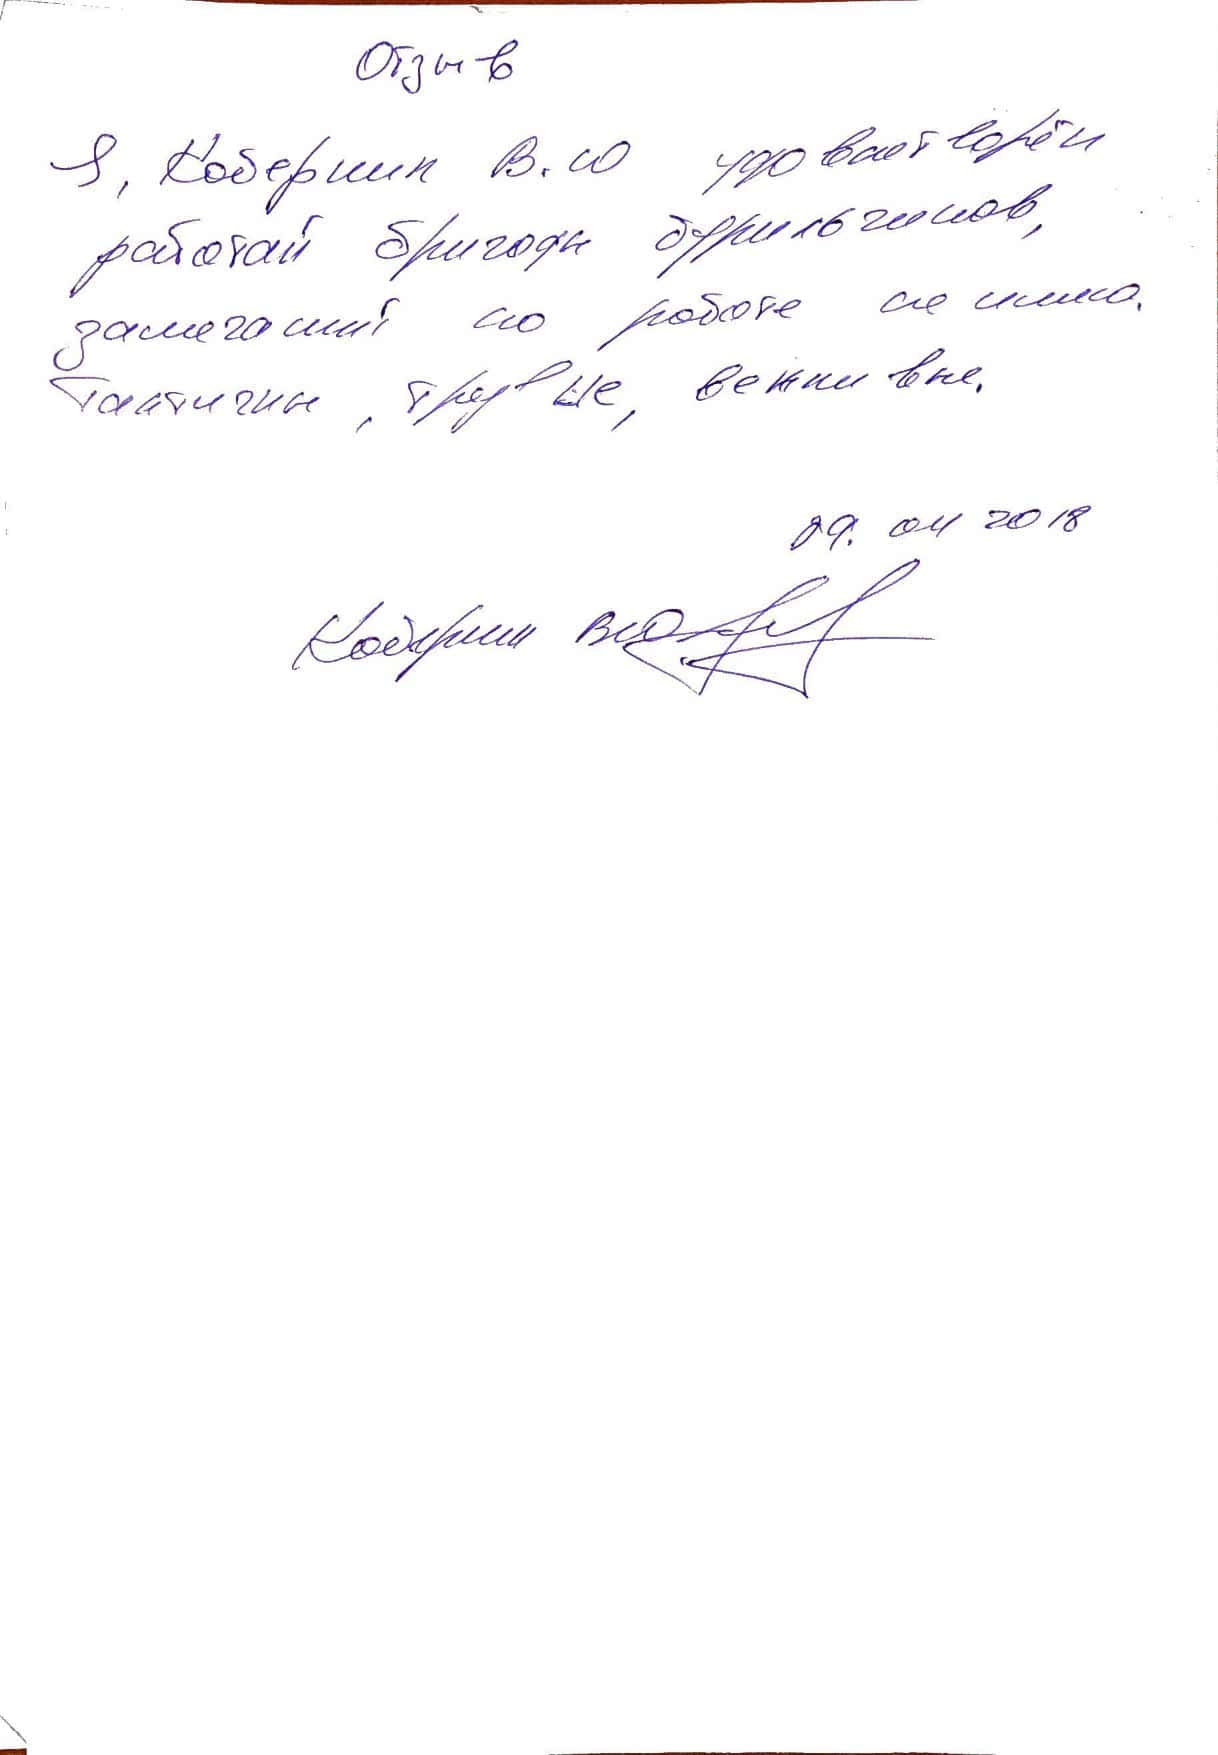 Отзыв
Я, Коберник В.Ю удовлетворён
работай бригады бурильчиков,
замечаний по работе не имею.
Тактичны, трезвые, вежливые.
29.04 2018
Коберник ВЮ